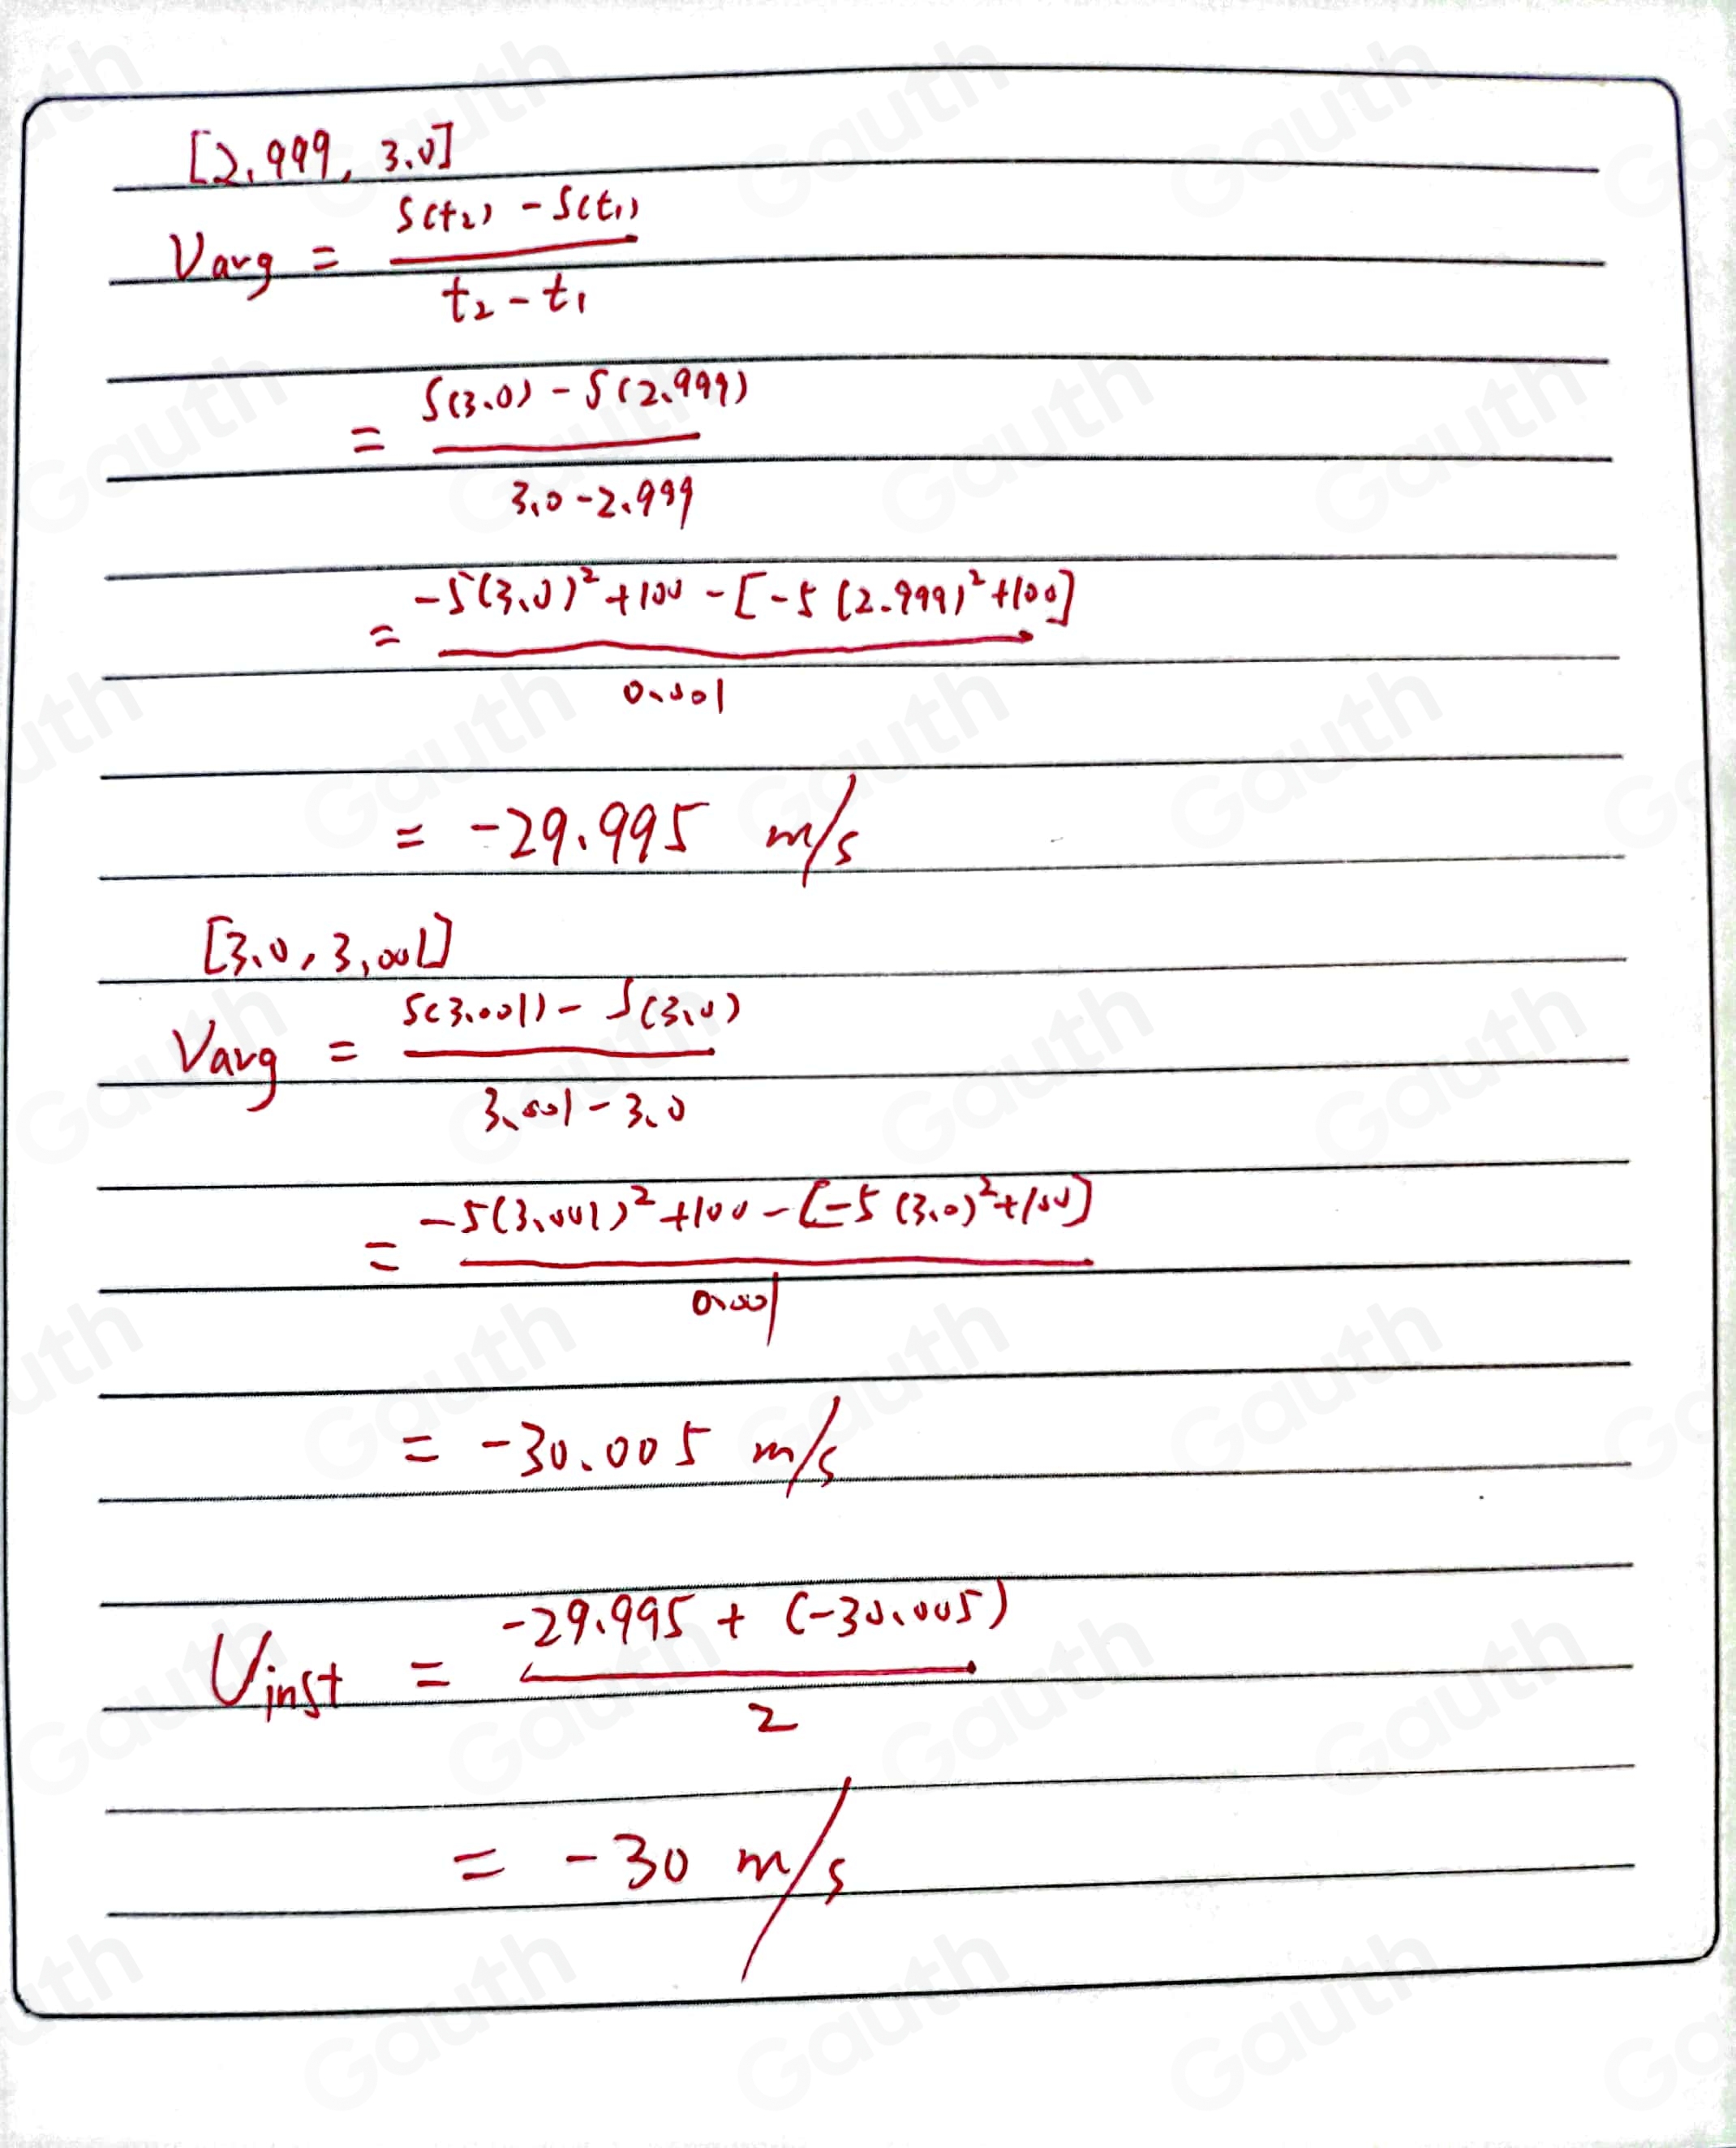 [2.999, 3.0]
Varg = S(t₂) - S(t₁) / t₂ - t₁
= S(3.0) - S(2.999) / 3.0 - 2.999
= -5(3.0)² + 100 - [-5(2.999)² + 100] / 0.001
= -29.995 m/s
[3.0, 3.001]
Varg = S(3.001) - S(3.0) / 3.001 - 3.0
= -5(3.001)² + 100 - [-5(3.0)² + 100] / 0.001
= -30.005 m/s
Vinst = -29.995 + (-30.005) / 2
= -30 m/s
Gauth